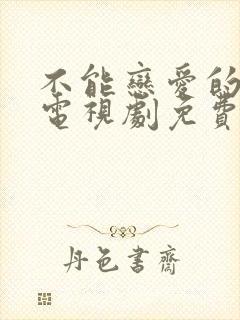 不能戀愛的
電視劇免費
丹色書齋